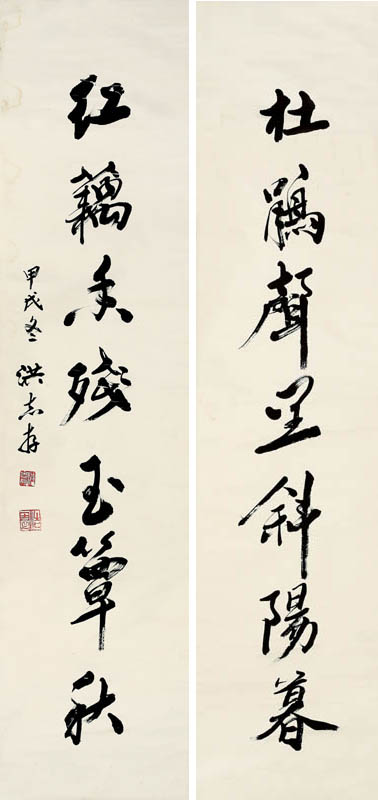 杜鵑聲里斜陽暮
紅藕香殘玉簟秋
甲戌冬 洪志存